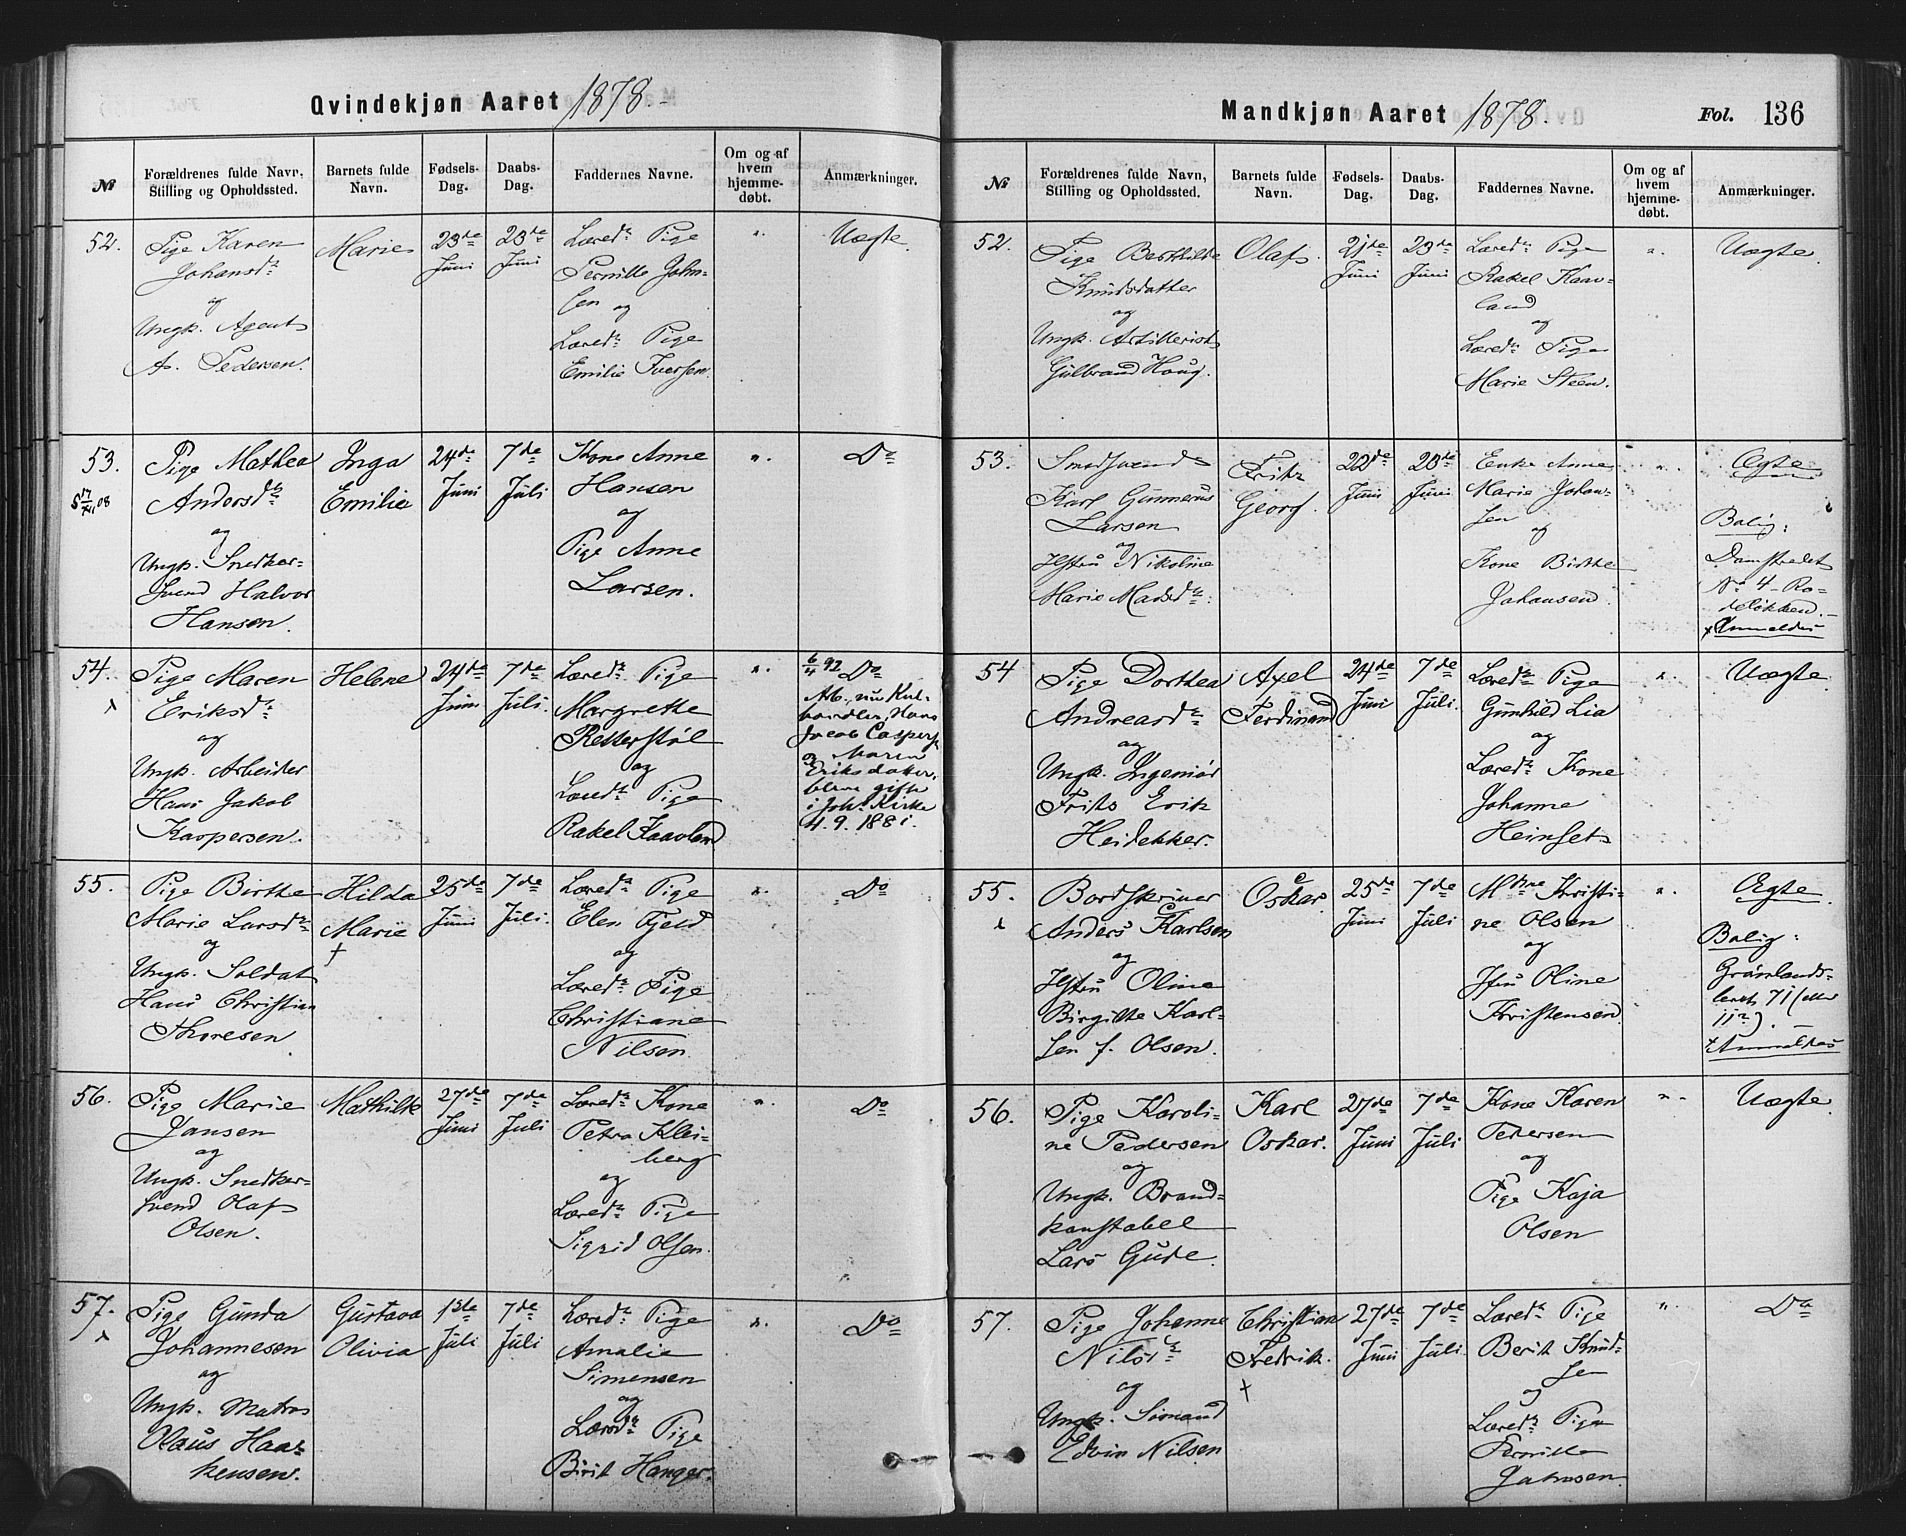 Qvindekjøn Aaret 1878.
№
Forældrenes fulde Navn,
Stilling og Opholdssted.
Barnets fulde
Navn.
Fødsels-
Dag.
Daabs-
Dag.
Faddernes Navne.
Om og af
hvem
hjemme-
døbt.
Anmærkninger.
52.
Pige Karen
Johansdr
og
Ungk. Agent
A. Pedersen.
Marie
23de
Juni
23de
Juni
Læredr Pige
Pernille John-
sen og
Læredr Pige
Emilie Iversen.
".
Uægte.
53.
Pige Mathea
Andersdr
og
Ungk. Snedker-
svend Halvor
Hansen.
Inga
Emilie
24de
Juni
7de
Juli
Kone Anne
Hansen
og
Pige Anne
Larsen.
".
Do
54.
Pige Maren
Eriksdr
og
Ungk. Arbeider
Hans Jakob
Kaspersen.
Helene
24de
Juni
7de
Juli.
Læredr Pige
Margrethe
Retterstøl
og
Læredr Pige
Rakel Kaavland
".
6/4 92 Do
Ab., nu Kul-
handler, Hans
Jacob Caspers.
og Maren
Eriksdatter,
bleve gifte
i Joh. Kirke
4.9.1881.
55.
Pige Birthe
Marie Larsdr
og
Ungk. Soldat
Hans Christian
Thoresen
Hilda
Marie
†
25de
Juni
7de
Juli.
Læredr Pige
Elen Fjeld
og
Læredr Pige
Christiane
Nilsen.
".
Do
56.
Pige Marie
Jansen
og
Ungk. Snedker-
svend Olaf
Olsen.
Mathilde
27de
Juni
7de
Juli
Læredr Kone
Petra Klei-
berg
og
Læredr Pige
Sigrid Olsen.
".
Do
57.
Pige Gunda
Johannesen
og
Ungk. Matros
Olaus Haa-
kensen.
Gustava
Olivia
1ste
Juli
7de
Juli
Læredr Pige
Amalie
Simensen
og
Læredr Pige
Birit Hanger.
".
Do
Mandkjøn Aaret 1878.
Fol. 136
№
Forældrenes fulde Navn,
Stilling og Opholdssted.
Barnets fulde
Navn.
Fødsels-
Dag.
Daabs-
Dag.
Faddernes Navne.
Om og af
hvem
hjemme-
døbt.
Anmærkninger.
52.
Pige Berthilde
Knudsdatter
og
Ungk. Artillerist
Gulbrand Haug.
Olaf.
21de
Juni
23de
Juni
Læredr Pige
Rakel Kaav-
land
og
Læredr Pige
Marie Steen.
".
Uægte.
53.
Smedsvend
Karl Gunnerus
Larsen
og
Hstru Nikoline
Marie Madsdr.
Fritz
Georg.
22de
Juni
Juni
Enke Anne
Marie Johan-
sen
og
Kone Birthe
Johansen.
".
Ægte
Bolig:
Damstrædet
No 4 - Ro-
deløkken.
Anmeldes
54
Pige Dorthea
Andreasdr
og
Ungk. Ingeniør
Frits Erik
Heidekker.
Axel
Ferdinand
24de
Juni
7de
Juli.
Læredr Pige
Gunhild Lia
og
Læredr Kone
Johanne
Heinset
".
Uægte.
55.
Bordskriver
Anders Karlsen
og
Hstru Oline
Birgitte Karl-
sen f. Olsen.
Oskar.
25de
Juni
7de
Juli
Mdme Kristi-
ne Olsen
og
Jfru Oline
Kristensen.
".
Ægte.
Bolig:
Grønlands-
leret 71 (eller
Anmeldes
56.
Pige Karoli-
ne Pedersen
og
Ungk. Brand-
konstabel
Lars Gude.
Karl
Oskar.
27de
Juni
7de
Juli
Kone Karen
Pedersen
og
Pige Kaja
Olsen
".
Uægte.
57.
Pige Johanne
Nilsdr
og
Ungk. Sømand
Edvin Nilsen
Christian
Fredrik.
†
27de
Juni
7de
Juli.
Læredr Pige
Berit Knud-
sen
og
Læredr Pige
Pernille
".
Do